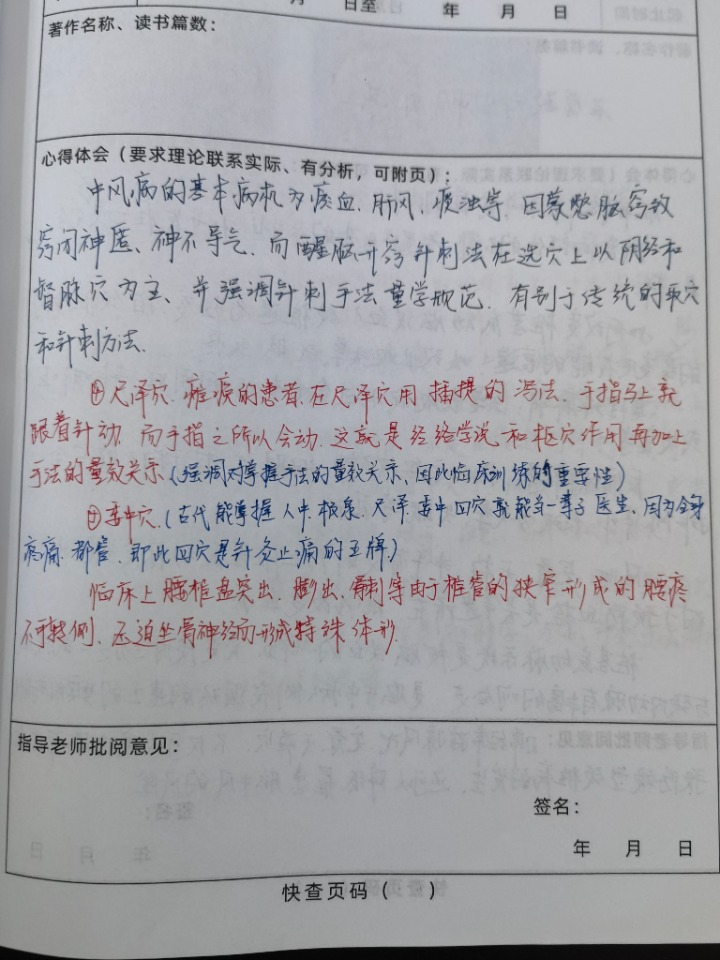 月 日至 年 月 日
著作名称、读书篇数：
心得体会（要求理论联系实际、有分析，可附页）：
中风病的基本病机为瘀血、肝风、痰浊等，因蒙蔽脑窍致
窍闭神匿、神不导气，而醒脑开窍针刺法在选穴上以阴经和
督脉穴为主、并强调针刺手法量学规范，有别于传统的取穴
和针刺方法.
①尺泽穴，瘫痪的患者，在尺泽穴用插提的泻法，手指马上就
跟着针动，而手指之所以会动，这就是经络学说和枢穴作用再加上
手法的量效关系（强调对掌握手法的量效关系、因此临床训练的重要性）
②委中穴，（古代能掌握人中、极泉、尺泽、委中四穴就能当一辈子医生，因为全身
疼痛都管，即此四穴是针灸止痛的王牌。）
临床上腰椎盘突出、膨出、骨刺等由于椎管的狭窄形成的腰疼
不可转侧、压迫坐骨神经而形成特殊体形.
指导老师批阅意见：
签名：
年 月 日
快查页码（ ）